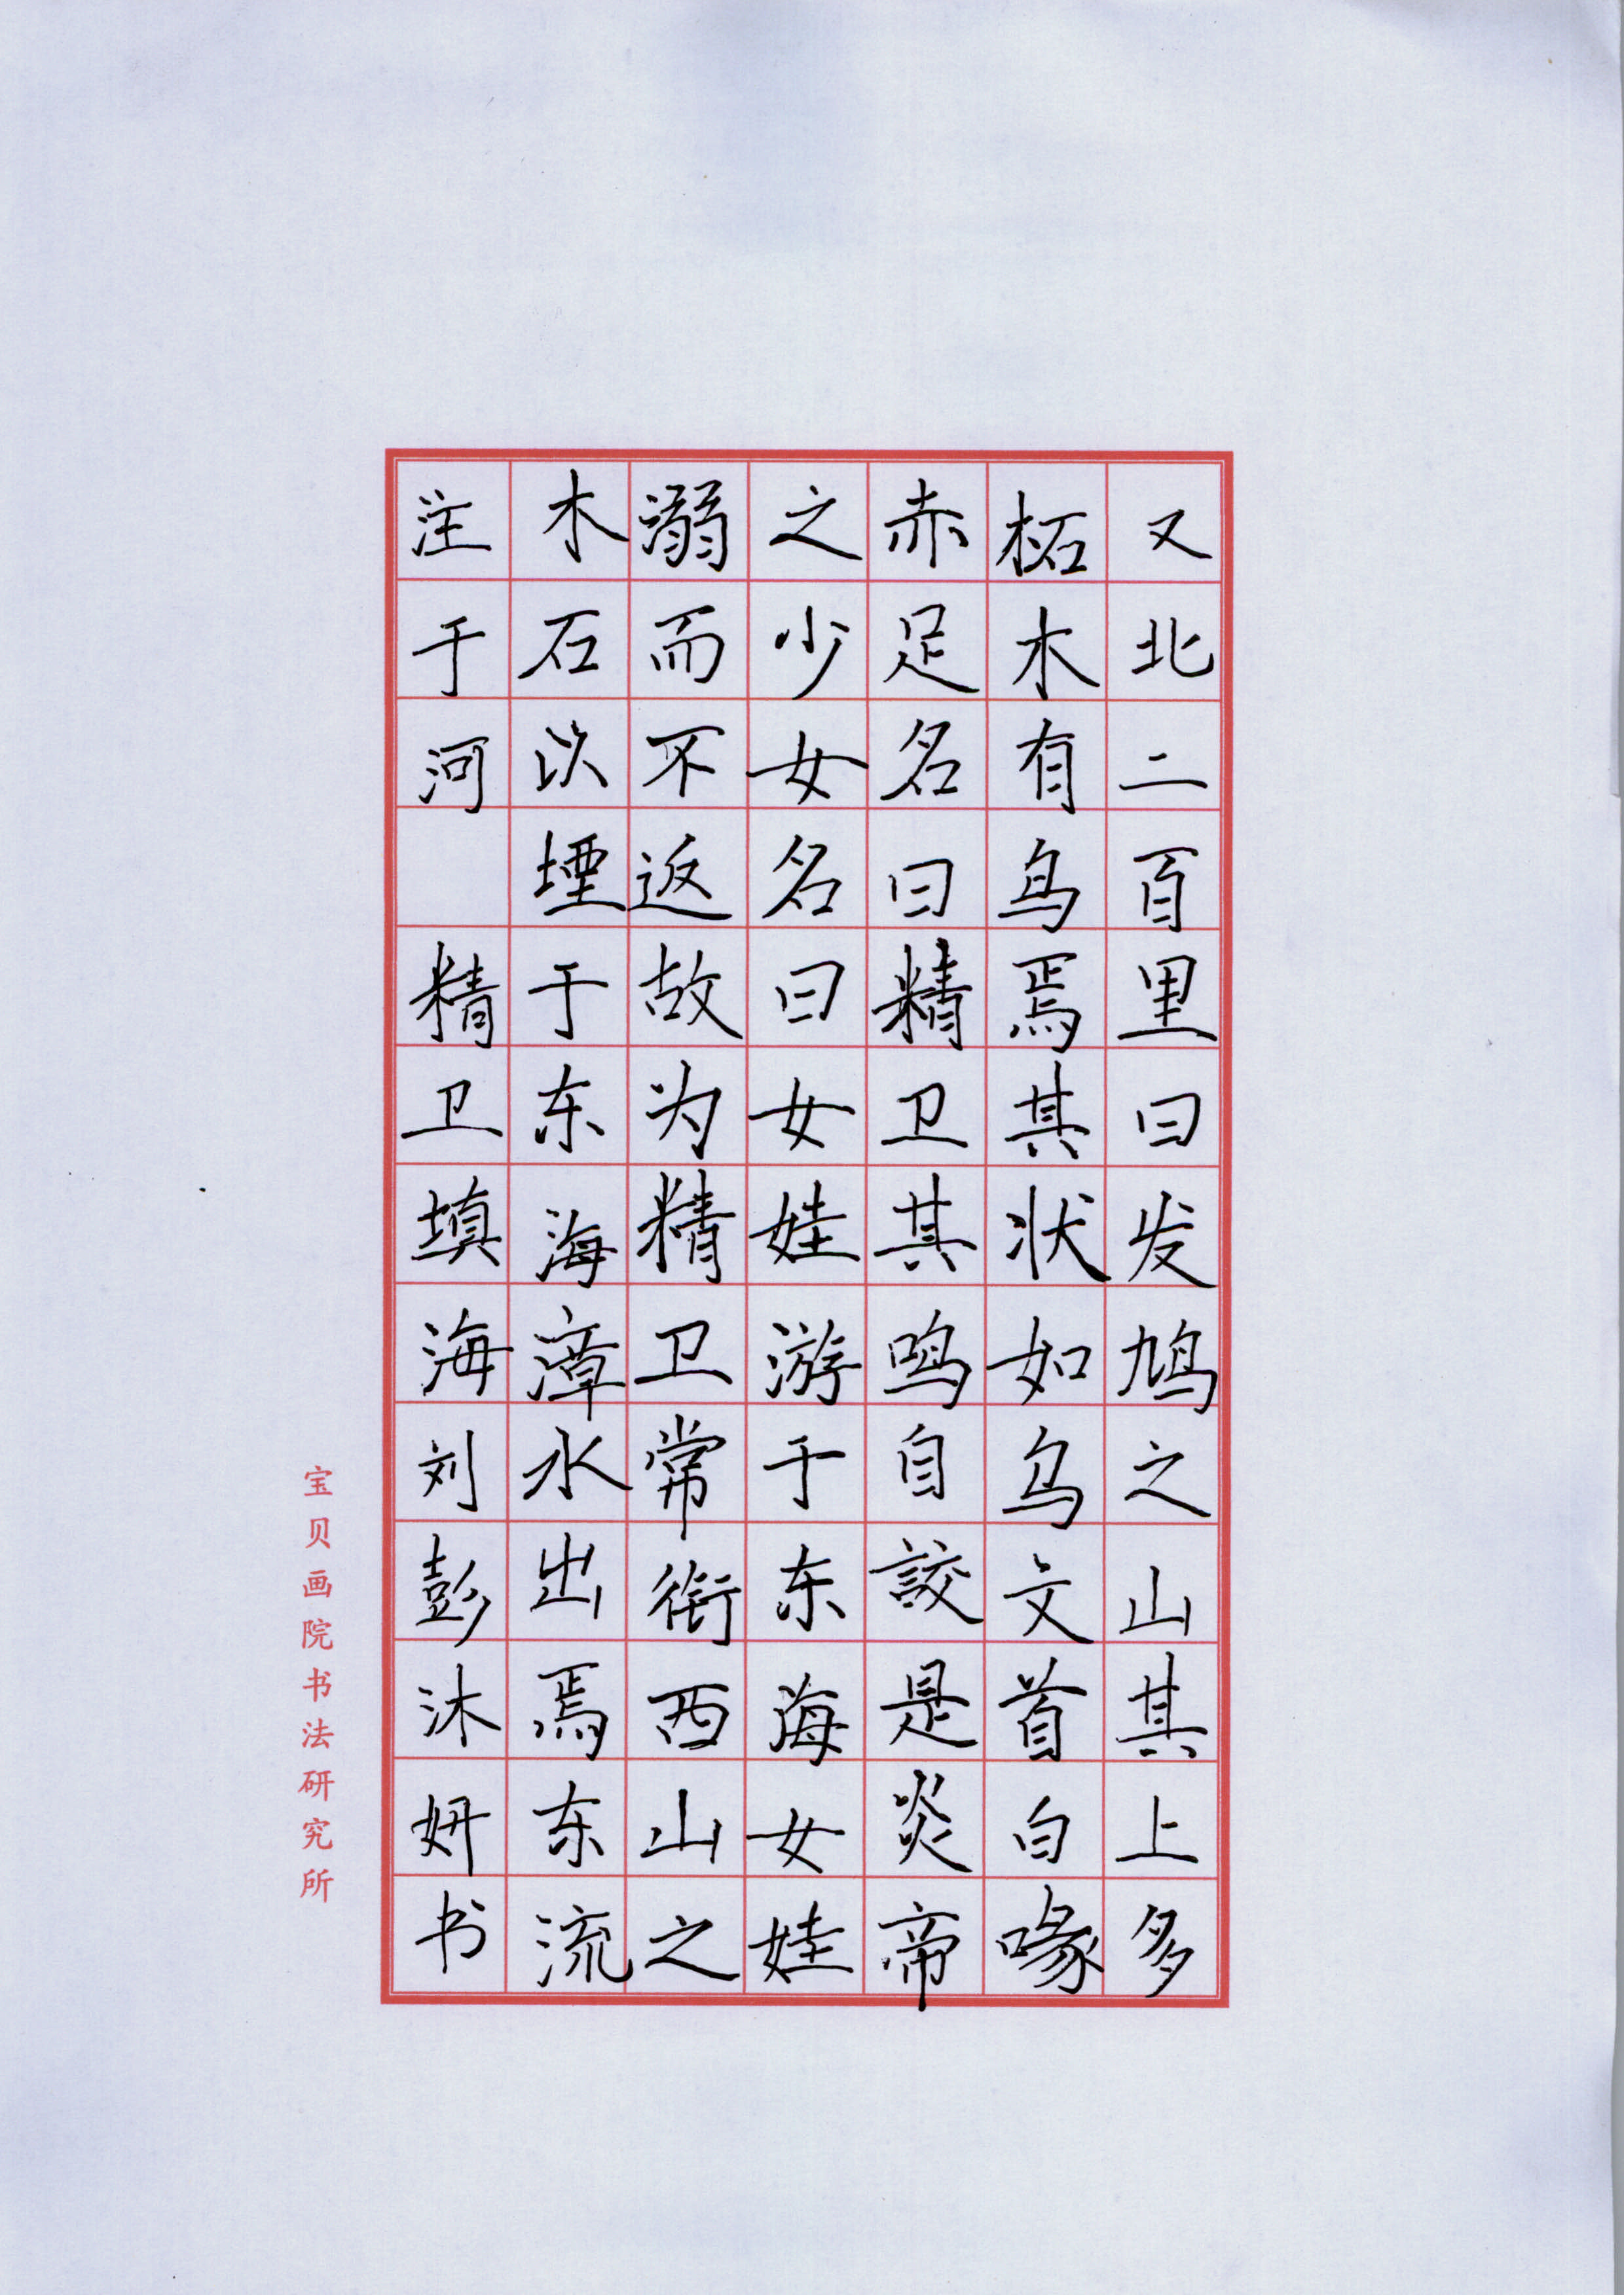 又北二百里曰发鸠之山其上多
柘木有鸟焉其状如乌文首白喙
赤足名曰精卫其鸣自詨是炎帝
之少女名曰女娃游于东海女娃
溺而不返故为精卫常衔西山之
木石以堙于东海漳水出焉东流
注于河 精卫填海刘彭沐妍书
宝贝画院书法研究所